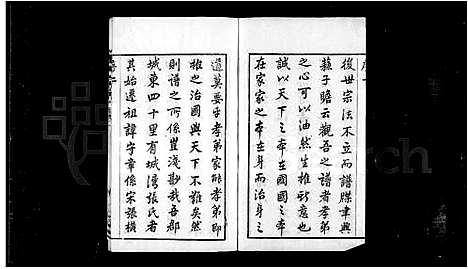 後世宗法不立而譜牒聿興
蘇子瞻云觀吾之譜者孝弟
之心可以油然生推斯意也
誠以天下之本在國國之本
在家家之本在身而治身之
道莫要乎孝弟家能孝弟即
推之治國與天下不難矣然
則譜之所係豈淺尠哉吾郡
城東四十里有城灣張氏者
其始遷祖諱字章係宋張橫